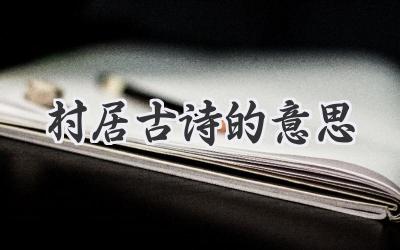 村居古诗的意思